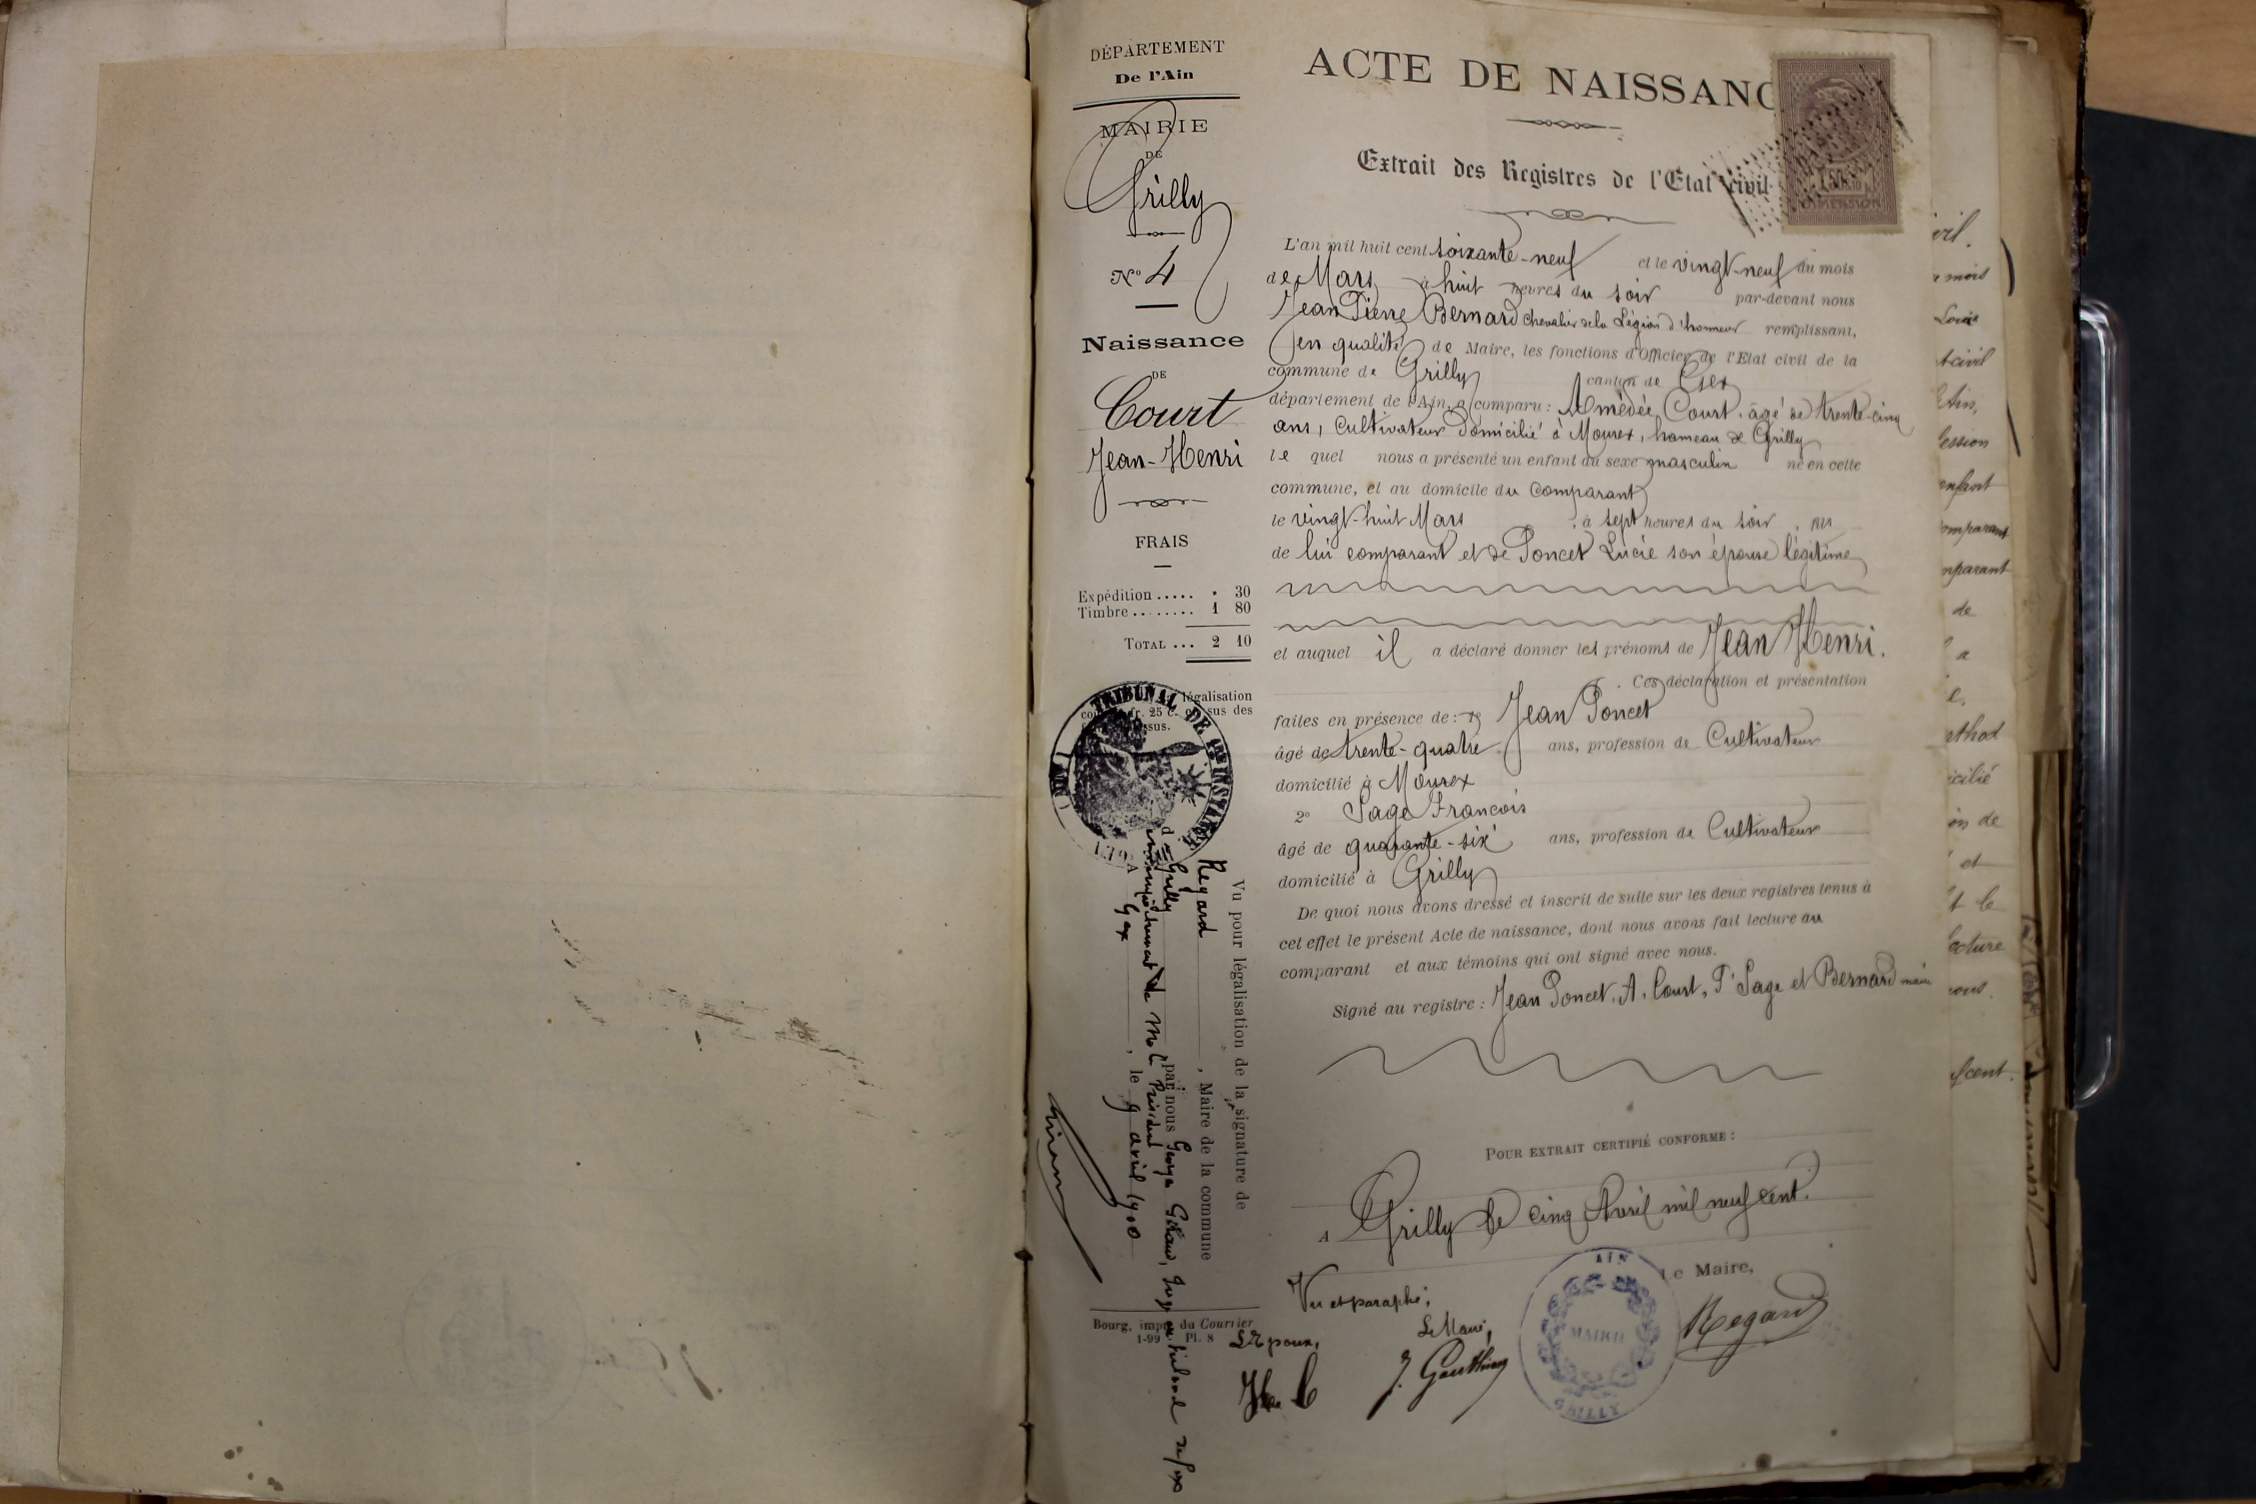 DÉPARTEMENT
De l'Ain
MAIRIE
DE
Grilly
N° 4
Naissance
DE
Court
Jean-Henri
FRAIS
Expédition ..... " 30
Timbre ........ 1 80
TOTAL ... 2 10
légalisation
fr. 25 c. sus des
sus.
TRIBUNAL DE 1RE INSTANCE
Vu pour légalisation de la signature de
Regard, Maire de la commune
de Grilly par nous Georges
empêchement de M. le Président
A Gex, le 9 avril 1900
Bourg, imp. du Courrier
1-99 Pl. 8
ACTE DE NAISSANC
Extrait des Registres de l'État civil
DIMENSION
L'an mil huit cent soixante-neuf et le vingt-neuf du mois
de Mars à huit heures du soir par-devant nous
Jean Pierre Bernard chevalier de la Légion d'honneur remplissant,
en qualité de Maire, les fonctions d'Officier de l'Etat civil de la
commune de Grilly canton de Gex
département de l'Ain, a comparu : Amédée Court, âgé de trente-cinq
ans, Cultivateur domicilié à Mourex, hameau de Grilly
le quel nous a présenté un enfant du sexe masculin né en cette
commune, et au domicile du comparant
le vingt-huit Mars, à sept heures du soir, fils
de lui comparant et de Poncet Lucie son épouse légitime
et auquel il a déclaré donner les prénoms de Jean Henri.
Ces déclaration et présentation
faites en présence de : 1° Jean Poncet
âgé de trente-quatre ans, profession de Cultivateur
domicilié à Mourex
2° Sage François
âgé de quarante-six ans, profession de Cultivateur
domicilié à Grilly
De quoi nous avons dressé et inscrit de suite sur les deux registres tenus à
cet effet le présent Acte de naissance, dont nous avons fait lecture au
comparant et aux témoins qui ont signé avec nous.
Signé au registre : Jean Poncet, A. Court, F. Sage et Bernard maire
POUR EXTRAIT CERTIFIÉ CONFORME :
A Grilly le cinq Avril mil neuf cent.
Le Maire,
Regard
AIN
MAIRIE
GRILLY
Vu et paraphé,
Le Maire,
J. Gauthier
L'Epoux,
civil.
mois
Louis
civil
Ain,
enfant
comparant
comparant
de
a
domicilié
et
le
lecture
nous.
cent.